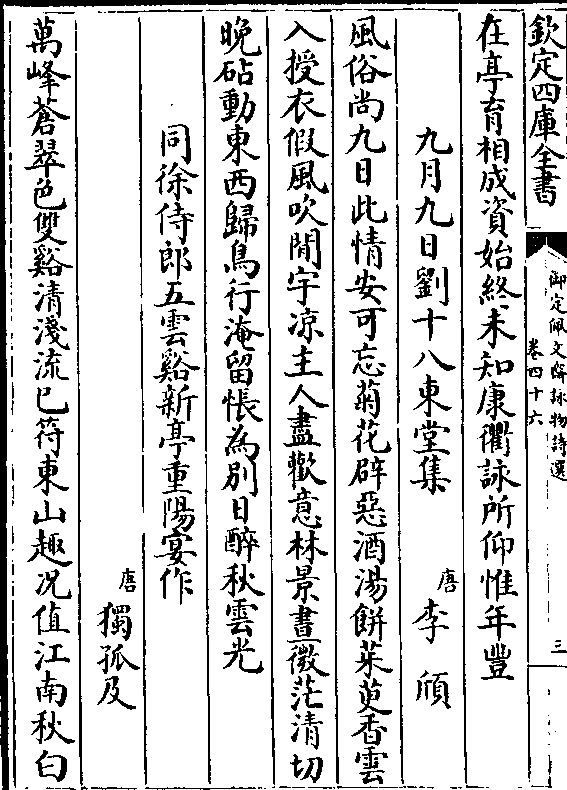 欽定四庫全書
御定佩文齋詠物詩選
卷四十六
三
在亭育相成資始終未知康衢詠所仰惟年豐
九月九日劉十八東堂集
唐李頎
風俗尚九日此情安可忘菊花辟惡酒湯餅茱萸香雲
入授衣假風吹閒宇凉主人盡歡意林景晝微茫清切
晩砧動東西歸鳥行淹留悵為別日醉秋雲光
同徐侍郎五雲谿新亭重陽宴作
唐獨孤及
萬峰蒼翠色雙谿清淺流已符東山趣况值江南秋白